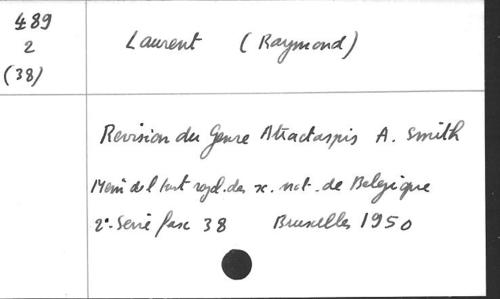 489
2
(38)
Laurent (Raymond)
Revision du Genre Atractaspis A. Smith
Mem de l Inst royal. des sc. nat. de Belgique
2e. Serie fasc 38 Bruxelles 1950